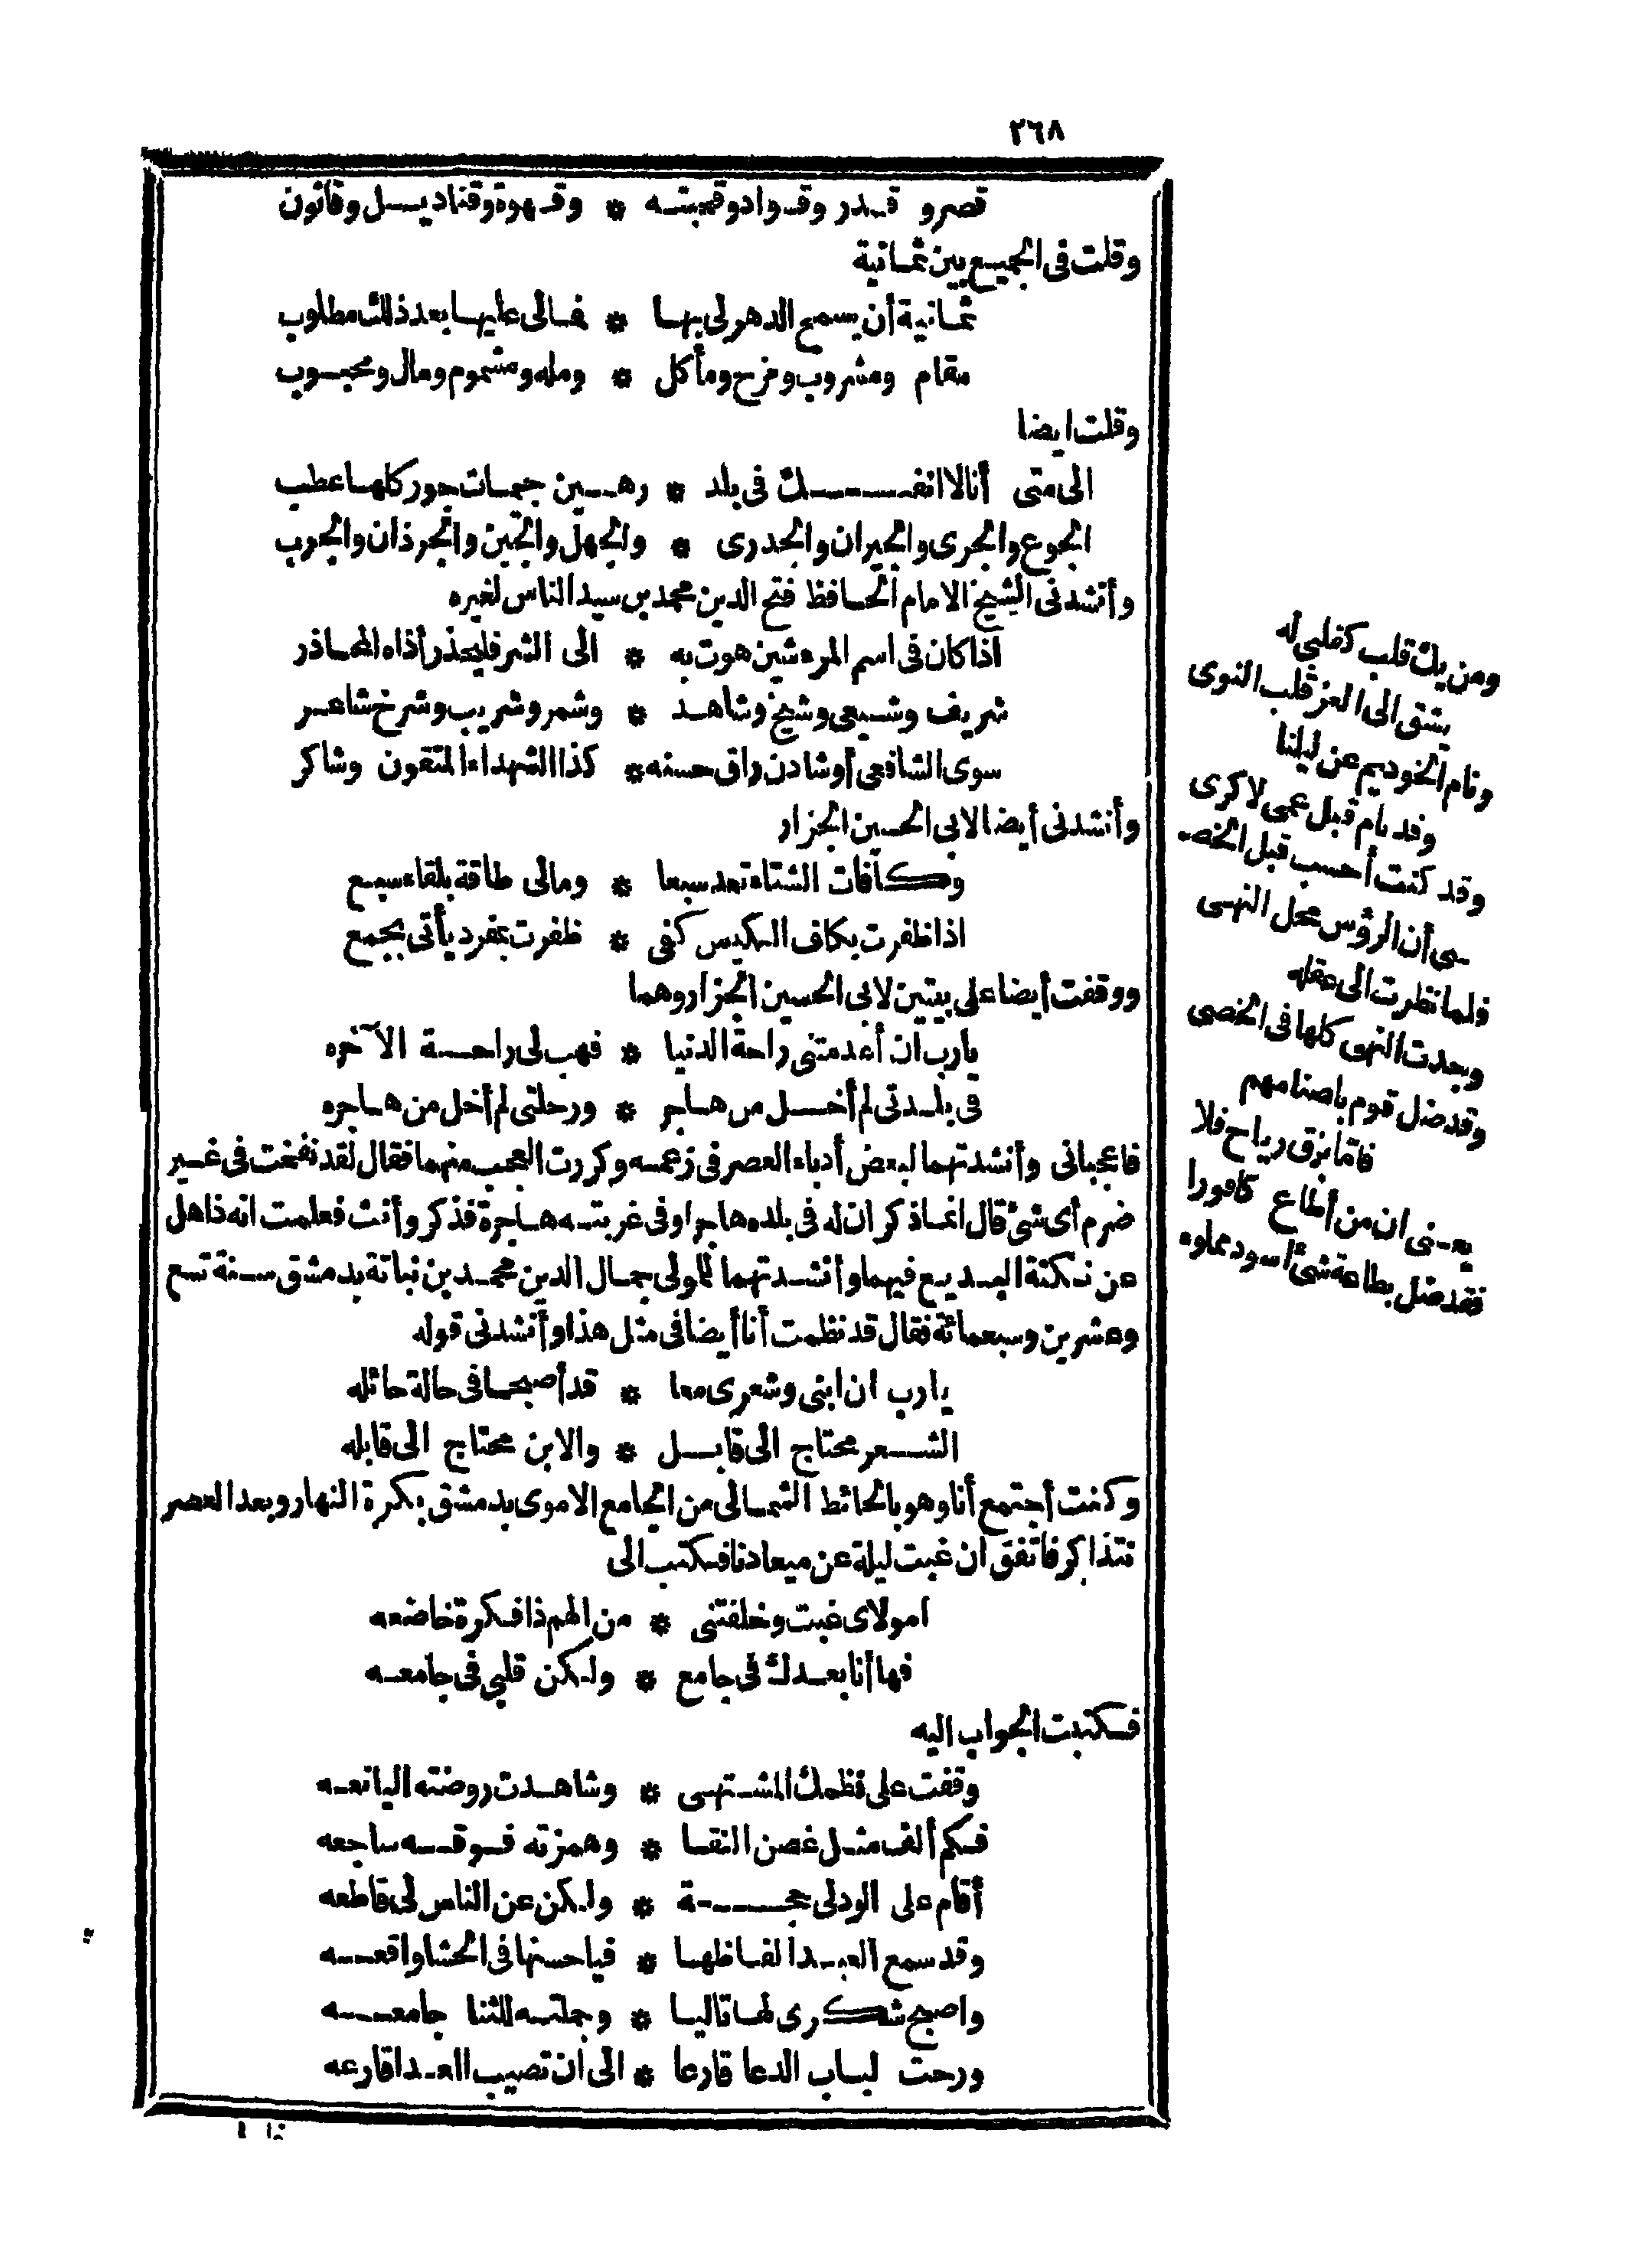 ٢٦٨
قصرو قدر وقواد وقحبته * وقهوة وقناديل وقانون
وقلت فى الجميع بين ثمانية
ثمانية أن يسمح الدهر لى بها * فمالى عليها بعد ذلك مطلوب
مقام ومشروب ومزح ومأكل * ومله ومشموم ومال ومحبوب
وقلت ايضا
الى متى أنا لا انفك فى بلد * رهين جيمات جور كلها عطب
الجوع والجرى والجيران والجدرى * والجهل والجبن والجرذان والجرب
وأنشدنى الشيخ الامام الحافظ فتح الدين محمد بن سيد الناس لغيره
اذا كان فى اسم المرء شين هوت به * الى الشر فليحذر أذاه المحاذر
شريف وشيعى وشيخ وشاهد * وشمر وشريب وشرخ شاعر
سوى الشافعى أو شادن راق حسنه * كذا الشهداء المتقون وشاكر
وأنشدنى أيضا لابى الحسين الجزار
وكافات الشتاء تعد سبعا * ومالى طاقة بلقاء سبع
اذا ظفرت بكاف الكيس كفى * ظفرت بمفرد يأتى بجمع
ووقفت أيضا على بيتين لابى الحسين الجزار وهما
يارب ان أعدمتنى راحة الدنيا * فهب لى راحة الآخره
فى بلدتى لم أخل من هاجر * ورحلتى لم أخل من هاجره
فاعجبانى وأنشدتهما لبعض أدباء العصر فى زعمه وكررت العجب منهما فقال لقد نفخت فى غير
ضرم أى شئ قال انما ذكر ان له فى بلده هاجرا وفى غربته هاجرة فذكر وأنث فعلمت انه ذاهل
عن نكتة البديع فيهما وأنشدتهما للمولى جمال الدين محمد بن نباتة بدمشق سنة تسع
وعشرين وسبعمائة فقال قد نظمت أنا أيضا فى مثل هذا وأنشدنى قوله
يارب ان ابنى وشعرى معا * قد أصبحا فى حالة حائله
الشعر محتاج الى قابل * والابن محتاج الى قابله
وكنت أجتمع أنا وهو بالحائط الشمالى من الجامع الاموى بدمشق بكرة النهار وبعد العصر
نتذاكر فاتفق ان غبت ليلة عن ميعادنا فكتب الى
امولاى غبت وخلفتنى * من الهم ذا فكرة خاضعه
فها أنا بعدك فى جامع * ولكن قلبى فى جامعه
فكتبت الجواب اليه
وقفت على نظمك المشتهى * وشاهدت روضته اليانعه
فكم ألف مثل غصن النقا * وهمزته فوقه ساجعه
أقام على الود لى حجة * ولكن عن الناس لى قاطعه
وقد سمع العبد ألفاظها * فيا حسنها فى الحشا واقعه
واصبح شكرى لها تاليا * وجملته للثنا جامعه
ورحت لباب الدعا قارعا * الى أن تصيب العدا قارعه
ومن يك قلب كقلبى له
يشق الى العز قلب النوى
ونام الخويدم عن ليلنا
وقد نام قبل عمى لا كرى
وقد كنت أحسب قبل الخصـ
ـى أن الرؤس محل النهى
فلما نظرت الى عقله
وجدت النهى كلها فى الخصى
وقد ضل قوم باصنامهم
فاما بزق رياح فلا
يعنى ان من أطاع كافورا
فقد ضل بطاعة شئ اسود مملوء